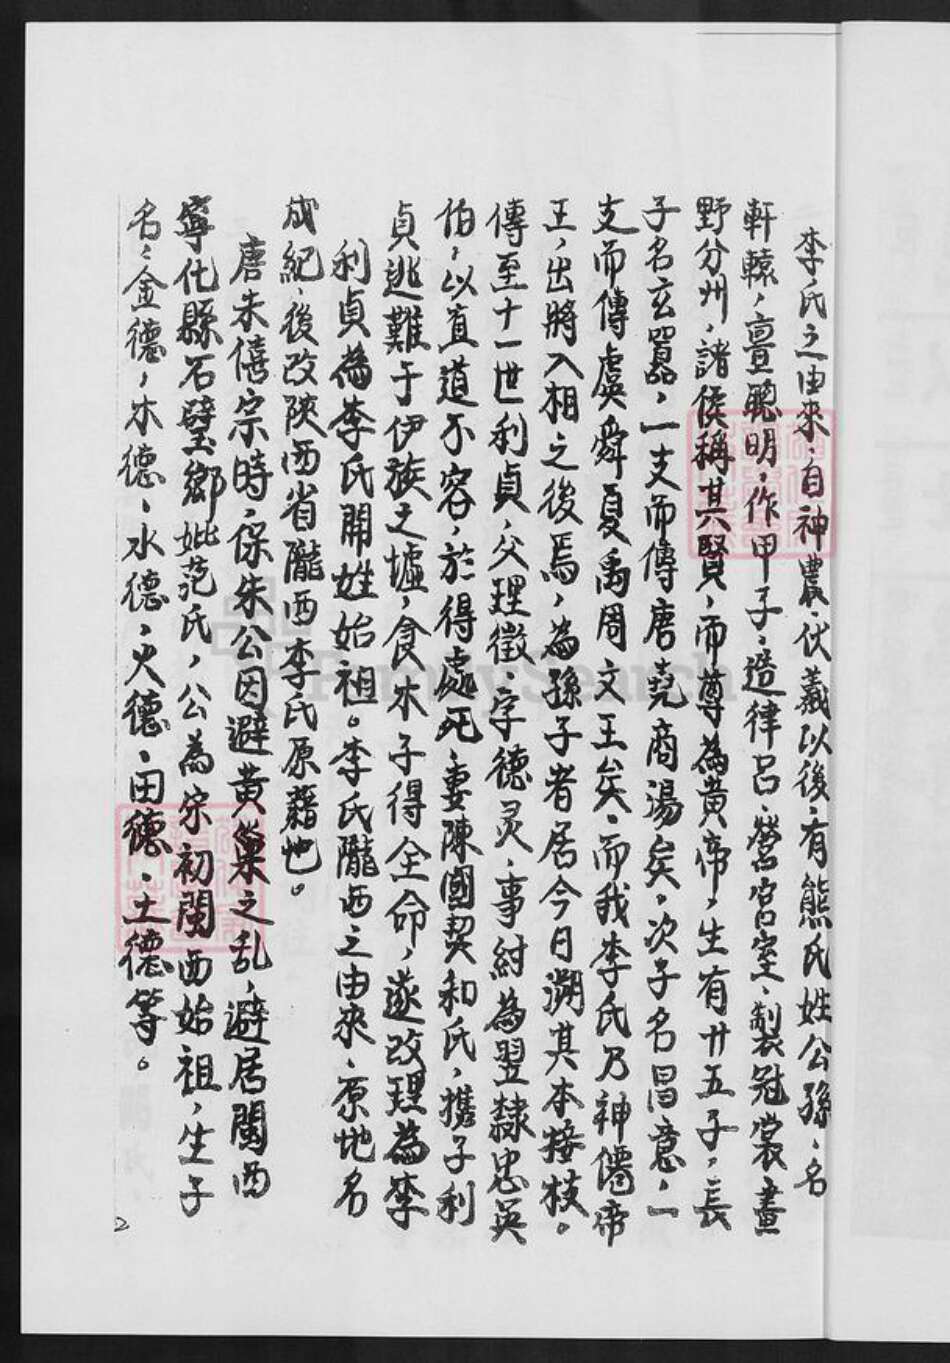 李氏之由來、自神農、伏羲以後、有熊氏姓公孫、名
軒轅，亶聰明，作甲子、造律呂、營宮室、製冠裳、畫
野分州，諸侯稱其賢，而尊為黃帝，生有廿五子，長
子名玄囂，一支而傳唐堯商湯矣，次子名昌意，一
支而傳虞舜夏禹周文王矣、而我李氏乃神僊帝
王，出將入相之後焉，為孫子者居今日溯其本接枝。
傳至十一世利貞，父理徵、字德灵、事紂為翌隸忠英
伯，以直道不容，於得處死，妻陳國契和氏，携子利
貞逃難于伊族之墟，食木子得全命，遂改理為李
利貞為李氏開姓始祖。李氏隴西之由來、原地名
成紀，後改陝西省隴西李氏原藉也。
唐朱僖宗時，保朱公因避黃巢之乱，避居閩西
寧化縣石壁鄉妣范氏，公為宗初閩西始祖，生子
名：金德，木德、水德，火德、田德、土德等。
2
FamilySearch